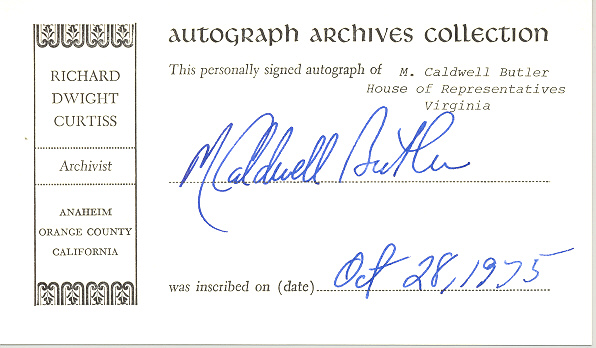 AUTOGRAPH ARCHIVES COLLECTION
RICHARD
DWIGHT
CURTISS
Archivist
ANAHEIM
ORANGE COUNTY
CALIFORNIA
This personally signed autograph of M. Caldwell Butler
House of Representatives
Virginia
M Caldwell Butler
was inscribed on (date) Oct 28, 1975